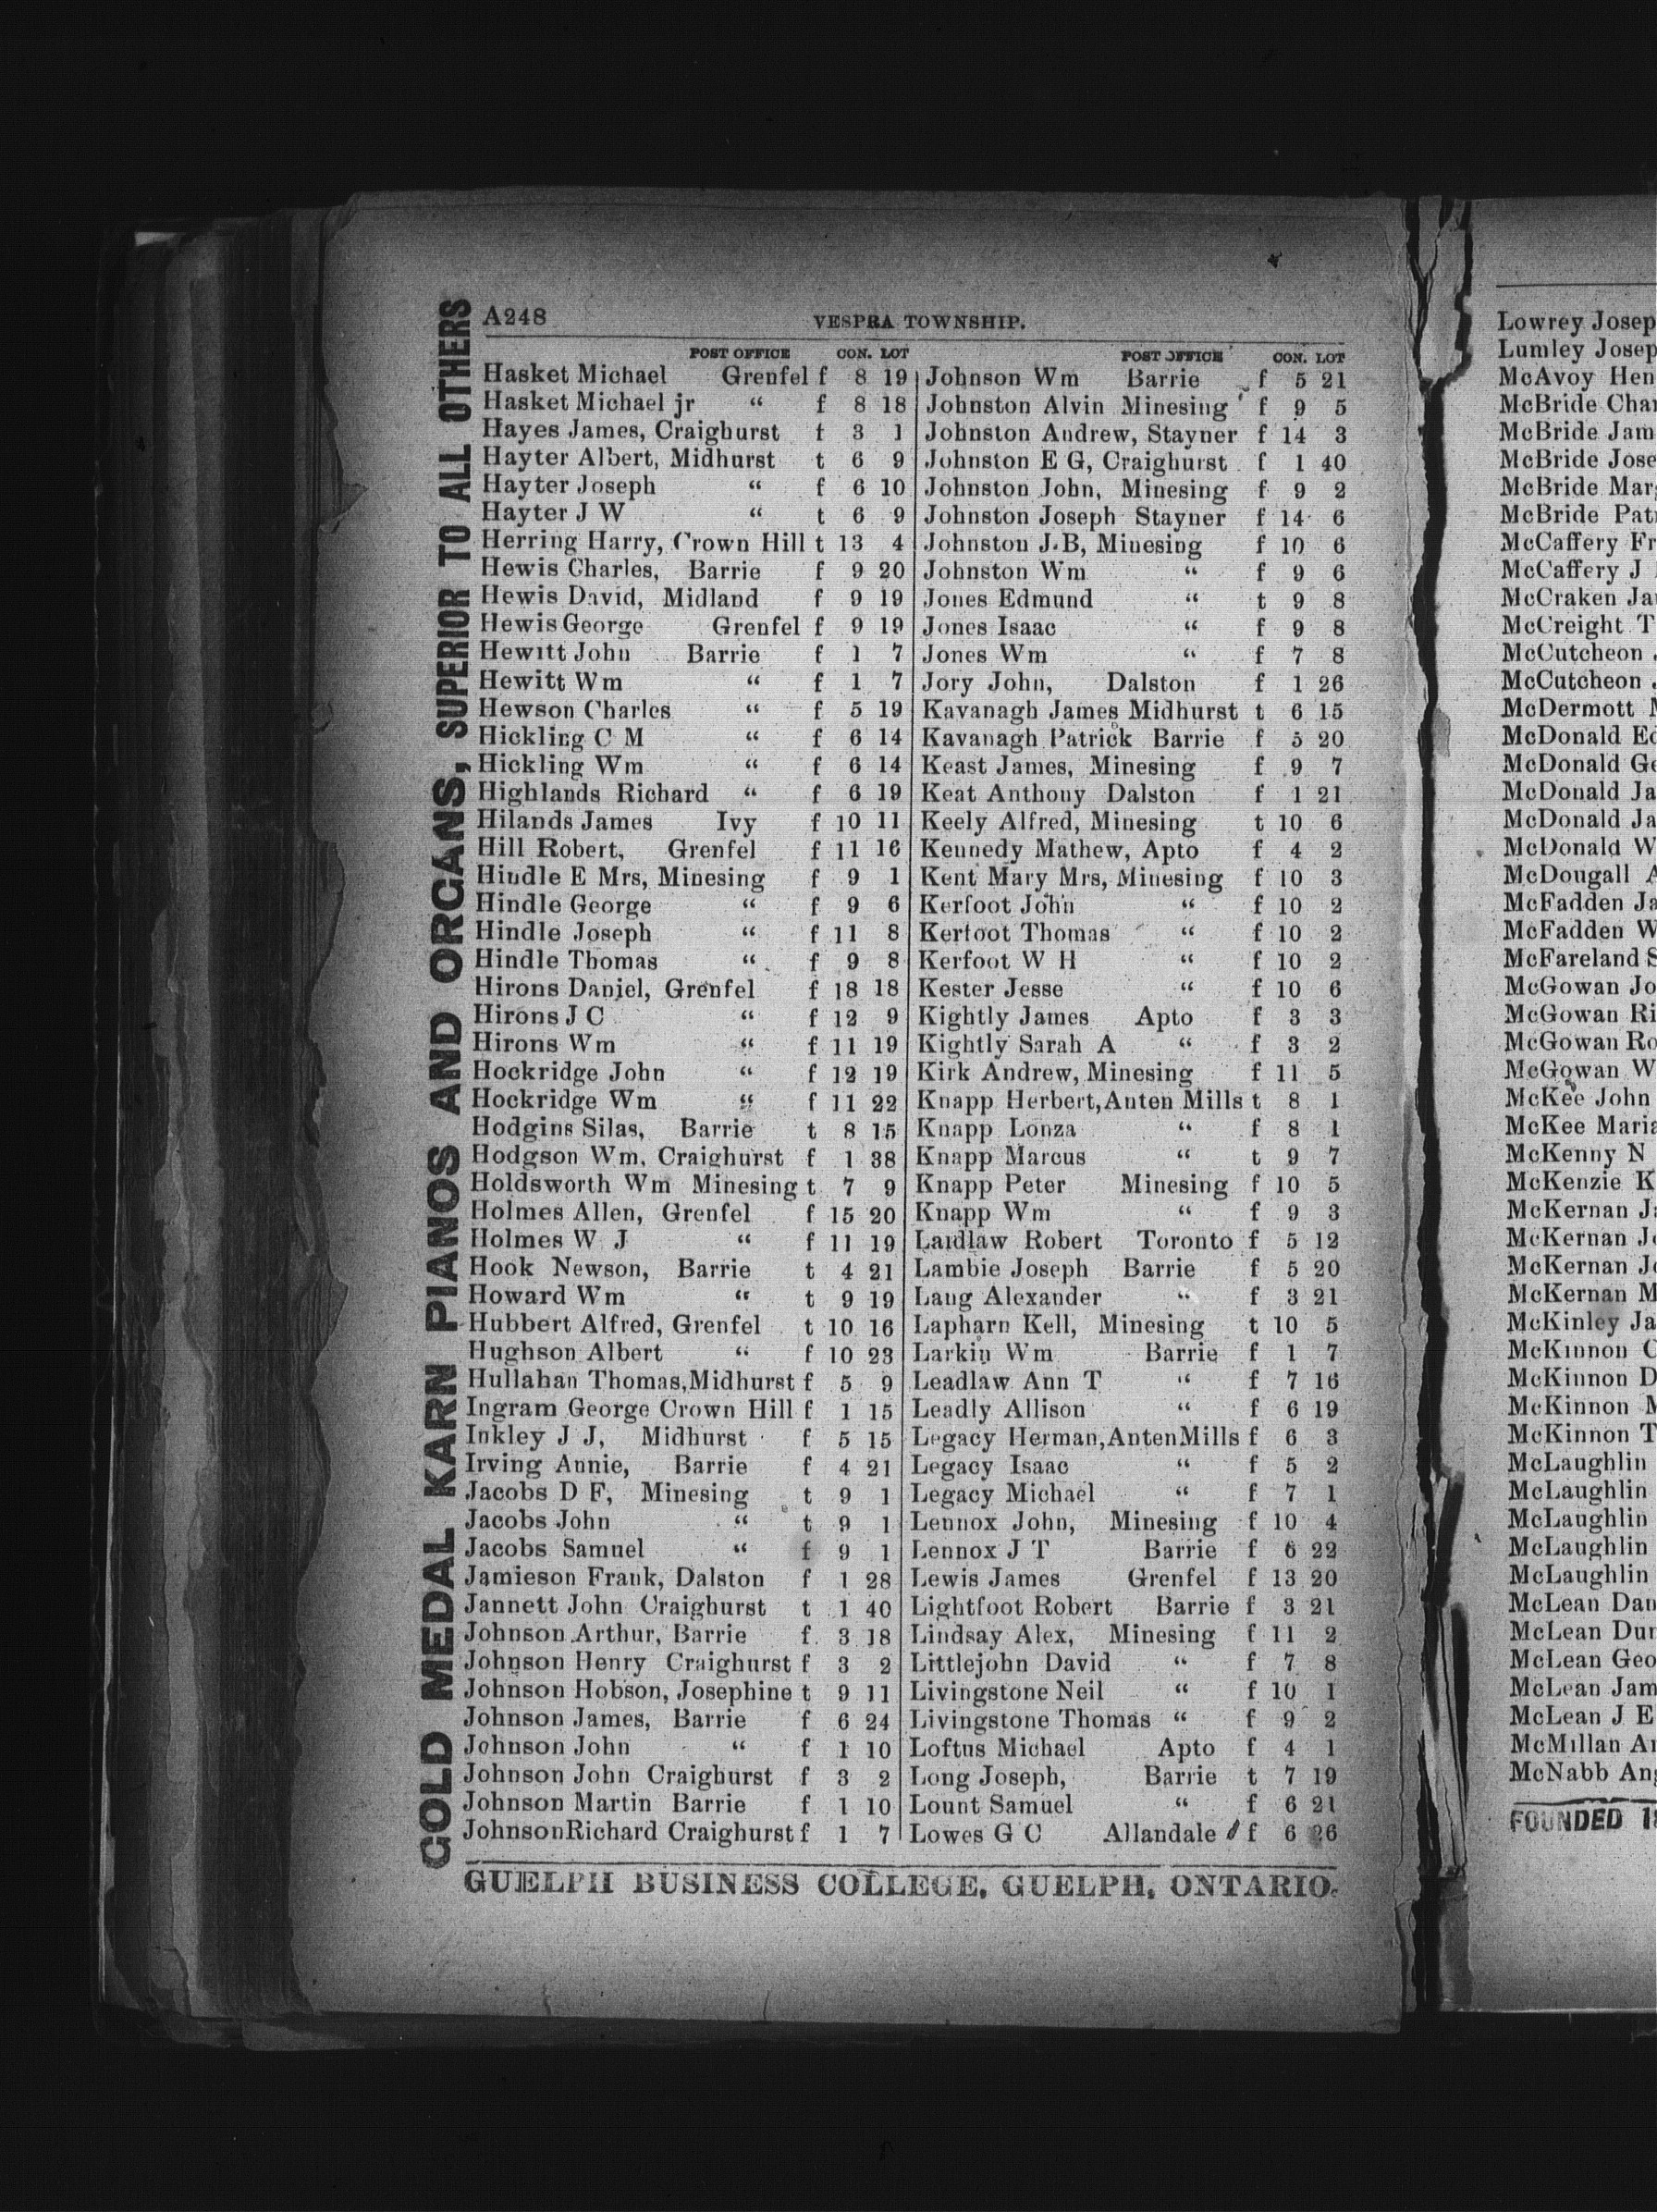 A248
VESPRA TOWNSHIP.
GOLD MEDAL KARN PIANOS AND ORGANS, SUPERIOR TO ALL OTHERS
POST OFFICE CON. LOT
Hasket Michael Grenfel f 8 19
Hasket Michael jr “ f 8 18
Hayes James, Craighurst t 3 1
Hayter Albert, Midhurst t 6 9
Hayter Joseph “ f 6 10
Hayter J W “ t 6 9
Herring Harry, Crown Hill t 13 4
Hewis Charles, Barrie f 9 20
Hewis David, Midland f 9 19
Hewis George Grenfel f 9 19
Hewitt John Barrie f 1 7
Hewitt Wm “ f 1 7
Hewson Charles “ f 5 19
Hickling C M “ f 6 14
Hickling Wm “ f 6 14
Highlands Richard “ f 6 19
Hilands James Ivy f 10 11
Hill Robert, Grenfel f 11 16
Hindle E Mrs, Minesing f 9 1
Hindle George “ f 9 6
Hindle Joseph “ f 11 8
Hindle Thomas “ f 9 8
Hirons Daniel, Grenfel f 18 18
Hirons J C “ f 12 9
Hirons Wm “ f 11 19
Hockridge John “ f 12 19
Hockridge Wm “ f 11 22
Hodgins Silas, Barrie t 8 15
Hodgson Wm, Craighurst f 1 38
Holdsworth Wm Minesing t 7 9
Holmes Allen, Grenfel f 15 20
Holmes W J “ f 11 19
Hook Newson, Barrie t 4 21
Howard Wm “ t 9 19
Hubbert Alfred, Grenfel t 10 16
Hughson Albert “ f 10 23
Hullahan Thomas, Midhurst f 5 9
Ingram George Crown Hill f 1 15
Inkley J J, Midhurst f 5 15
Irving Annie, Barrie f 4 21
Jacobs D F, Minesing t 9 1
Jacobs John “ t 9 1
Jacobs Samuel “ f 9 1
Jamieson Frank, Dalston f 1 28
Jannett John Craighurst t 1 40
Johnson Arthur, Barrie f 3 18
Johnson Henry Craighurst f 3 2
Johnson Hobson, Josephine t 9 11
Johnson James, Barrie f 6 24
Johnson John “ f 1 10
Johnson John Craighurst f 3 2
Johnson Martin Barrie f 1 10
Johnson Richard Craighurst f 1 7
POST OFFICE CON. LOT
Johnson Wm Barrie f 5 21
Johnston Alvin Minesing f 9 5
Johnston Andrew, Stayner f 14 3
Johnston E G, Craighurst f 1 40
Johnston John, Minesing f 9 2
Johnston Joseph Stayner f 14 6
Johnston J.B, Minesing f 10 6
Johnston Wm “ f 9 6
Jones Edmund “ t 9 8
Jones Isaac “ f 9 8
Jones Wm “ f 7 8
Jory John, Dalston f 1 26
Kavanagh James Midhurst t 6 15
Kavanagh Patrick Barrie f 5 20
Keast James, Minesing f 9 7
Keat Anthony Dalston f 1 21
Keely Alfred, Minesing t 10 6
Kennedy Mathew, Apto f 4 2
Kent Mary Mrs, Minesing f 10 3
Kerfoot John “ f 10 2
Kerfoot Thomas “ f 10 2
Kerfoot W H “ f 10 2
Kester Jesse “ f 10 6
Kightly James Apto f 3 3
Kightly Sarah A “ f 3 2
Kirk Andrew, Minesing f 11 5
Knapp Herbert, Anten Mills t 8 1
Knapp Lonza “ f 8 1
Knapp Marcus “ t 9 7
Knapp Peter Minesing f 10 5
Knapp Wm “ f 9 3
Laidlaw Robert Toronto f 5 12
Lambie Joseph Barrie f 5 20
Lang Alexander “ f 3 21
Lapharn Kell, Minesing t 10 5
Larkin Wm Barrie f 1 7
Leadlaw Ann T “ f 7 16
Leadly Allison “ f 6 19
Legacy Herman, Anten Mills f 6 3
Legacy Isaac “ f 5 2
Legacy Michael “ f 7 1
Lennox John, Minesing f 10 4
Lennox J T Barrie f 6 22
Lewis James Grenfel f 13 20
Lightfoot Robert Barrie f 3 21
Lindsay Alex, Minesing f 11 2
Littlejohn David “ f 7 8
Livingstone Neil “ f 10 1
Livingstone Thomas “ f 9 2
Loftus Michael Apto f 4 1
Long Joseph, Barrie t 7 19
Lount Samuel “ f 6 21
Lowes G C Allandale f 6 26
GUELPH BUSINESS COLLEGE, GUELPH, ONTARIO.
Lowrey
Lumley
McAvoy
McBride
McBride
McBride
McBride
McBride
McCaffery
McCaffery J
McCraken
McCreight
McCutcheon
McCutcheon
McDermott
McDonald
McDonald
McDonald
McDonald
McDonald
McDougall
McFadden
McFadden
McFareland
McGowan
McGowan
McGowan
McGowan
McKee John
McKee
McKenny N
McKenzie
McKernan
McKernan
McKernan
McKernan
McKinley
McKinnon
McKinnon
McKinnon
McKinnon
McLaughlin
McLaughlin
McLaughlin
McLaughlin
McLaughlin
McLean
McLean
McLean
McLean
McLean J E
McMillan
McNabb
FOUNDED